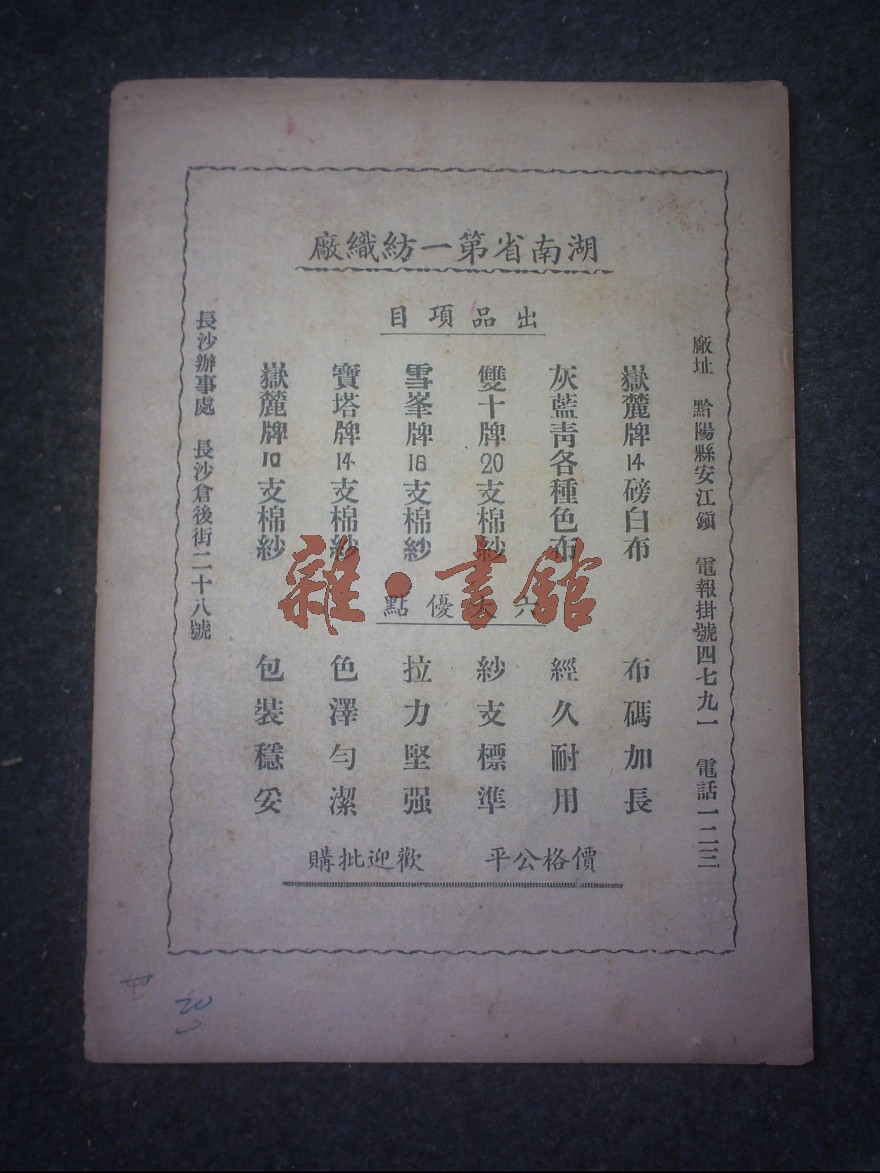 湖南省第一紡織廠
出品項目
嶽麓牌14磅白布
灰藍青各種色布
雙十牌20支棉紗
雪峯牌16支棉紗
寶塔牌14支棉紗
嶽麓牌10支棉紗
六大優點
布碼加長
經久耐用
紗支標準
拉力堅强
色澤勻潔
包裝穩妥
價格公平 歡迎批購
廠址 黔陽縣安江鎭 電報掛號四七九一 電話一二三
長沙辦事處 長沙倉後街二十八號
雜·書館
20